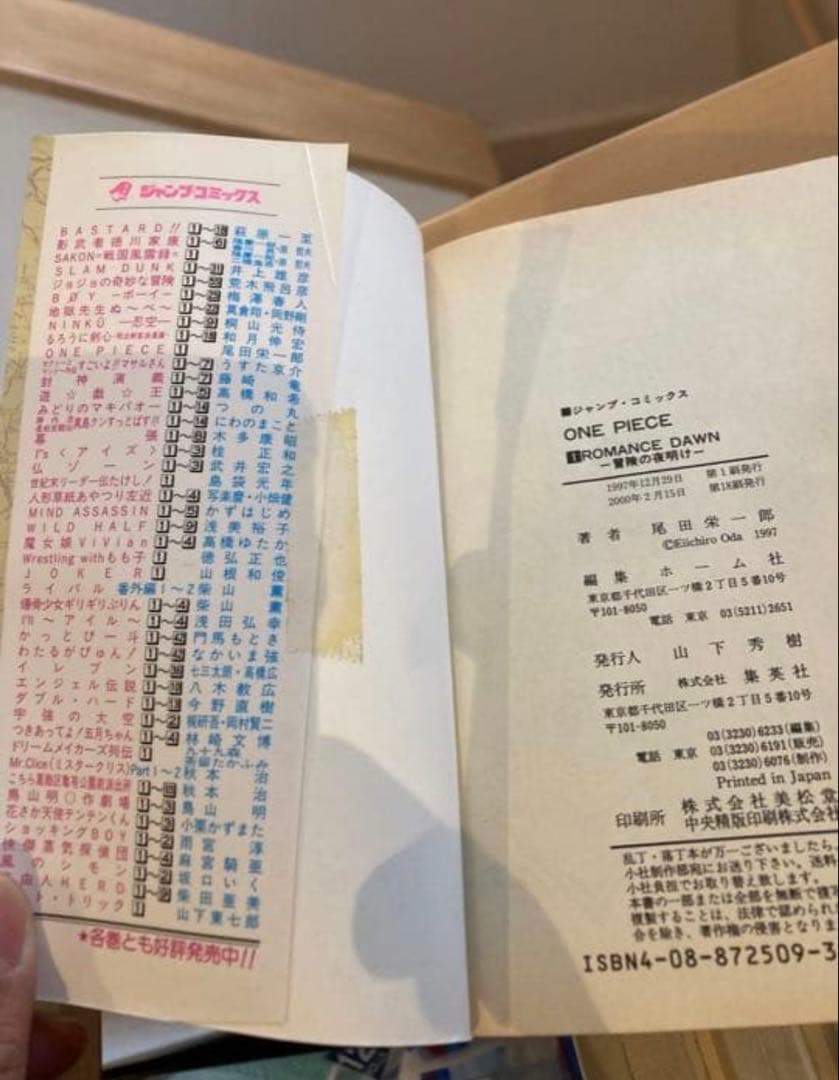 ジャンプコミックス
BASTARD!! 1~ 萩原一至
影武者徳川家康 1~
SAKON=戦国風雲録= 1
SLAM DUNK 1~ 井上雄彦
ジョジョの奇妙な冒険 1~ 荒木飛呂彦
BØY―ボーイ― 1~ 梅澤春人
地獄先生ぬ~べ~ 1~ 真倉翔・岡野剛
NINKŪ―忍空― 1~ 桐山光侍
るろうに剣心 1~ 和月伸宏
ONE PIECE 1 尾田栄一郎
すごいよ!!マサルさん 1~7 うすた京介
封神演義 1~7 藤崎竜
遊☆戯☆王 1~ 高橋和希
みどりのマキバオー 1~ つの丸
真島クンすっとばす!! 1~ にわのまこと
幕張 1~ 木多康昭
I"s〈アイズ〉 1~ 桂正和
仏ゾーン 1~ 武井宏之
世紀末リーダー伝たけし! 1 島袋光年
人形草紙あやつり左近 1~4 写楽麿・小畑健
MIND ASSASSIN 1~5 かずはじめ
WILD HALF 1~9 浅美裕子
魔女娘ViVian 1~4 高橋ゆたか
Wrestling withもも子 1 徳弘正也
JOKER 1 山根和俊
ライバル 番外編1~2 柴山薫
爆骨少女ギリギリぷりん 1~ 柴山薫
I'll~アイル~ 1~4 浅田弘幸
かっとび一斗 1~ 門馬もとき
わたるがぴゅん! 1~ なかいま強
イレブン 1~ 七三太朗・高橋広
エンジェル伝説 1~ 八木教広
ダブル・ハード 1~ 今野直樹
宇強の大空 1~2 梶研吾・岡村賢二
つきあってよ!五月ちゃん 1~4 林崎文博
ドリームメイカーズ列伝 1
Mr.Clice(ミスタークリス) Part1~2 秋本治
こちら葛飾区亀有公園前派出所 1~ 秋本治
鳥山明○作劇場 1~ 鳥山明
花さか天使テンテンくん 1~ 小栗かずまた
ショッキングBOY 1~ 雨宮淳
怪傑蒸気探偵団 1~ 麻宮騎亜
のシモン 1~ 坂口いく
由人HERO 1~ 柴田亜美
ト・トリック 1 山下東七郎
★各巻とも好評発売中!!
■ジャンプ・コミックス
ONE PIECE
1 ROMANCE DAWN
―冒険の夜明け―
1997年12月29日 第1刷発行
2000年2月15日 第18刷発行
著者 尾田栄一郎
©Eiichiro Oda 1997
編集 ホーム社
東京都千代田区一ツ橋2丁目5番10号
〒101-8050
電話 東京 03(5211)2651
発行人 山下秀樹
発行所 株式会社 集英社
東京都千代田区一ツ橋2丁目5番10号
〒101-8050
03(3230)6233(編集)
電話 東京 03(3230)6191(販売)
03(3230)6076(制作)
Printed in Japan
印刷所 株式会社美松堂
中央精版印刷株式会社
乱丁・落丁本が万一ございましたら、
小社制作部宛にお送り下さい。送料
小社負担でお取り替え致します。
本書の一部または全部を無断で複写
複製することは、法律で認められ
合を除き、著作権の侵害となりま
ISBN4-08-872509-3